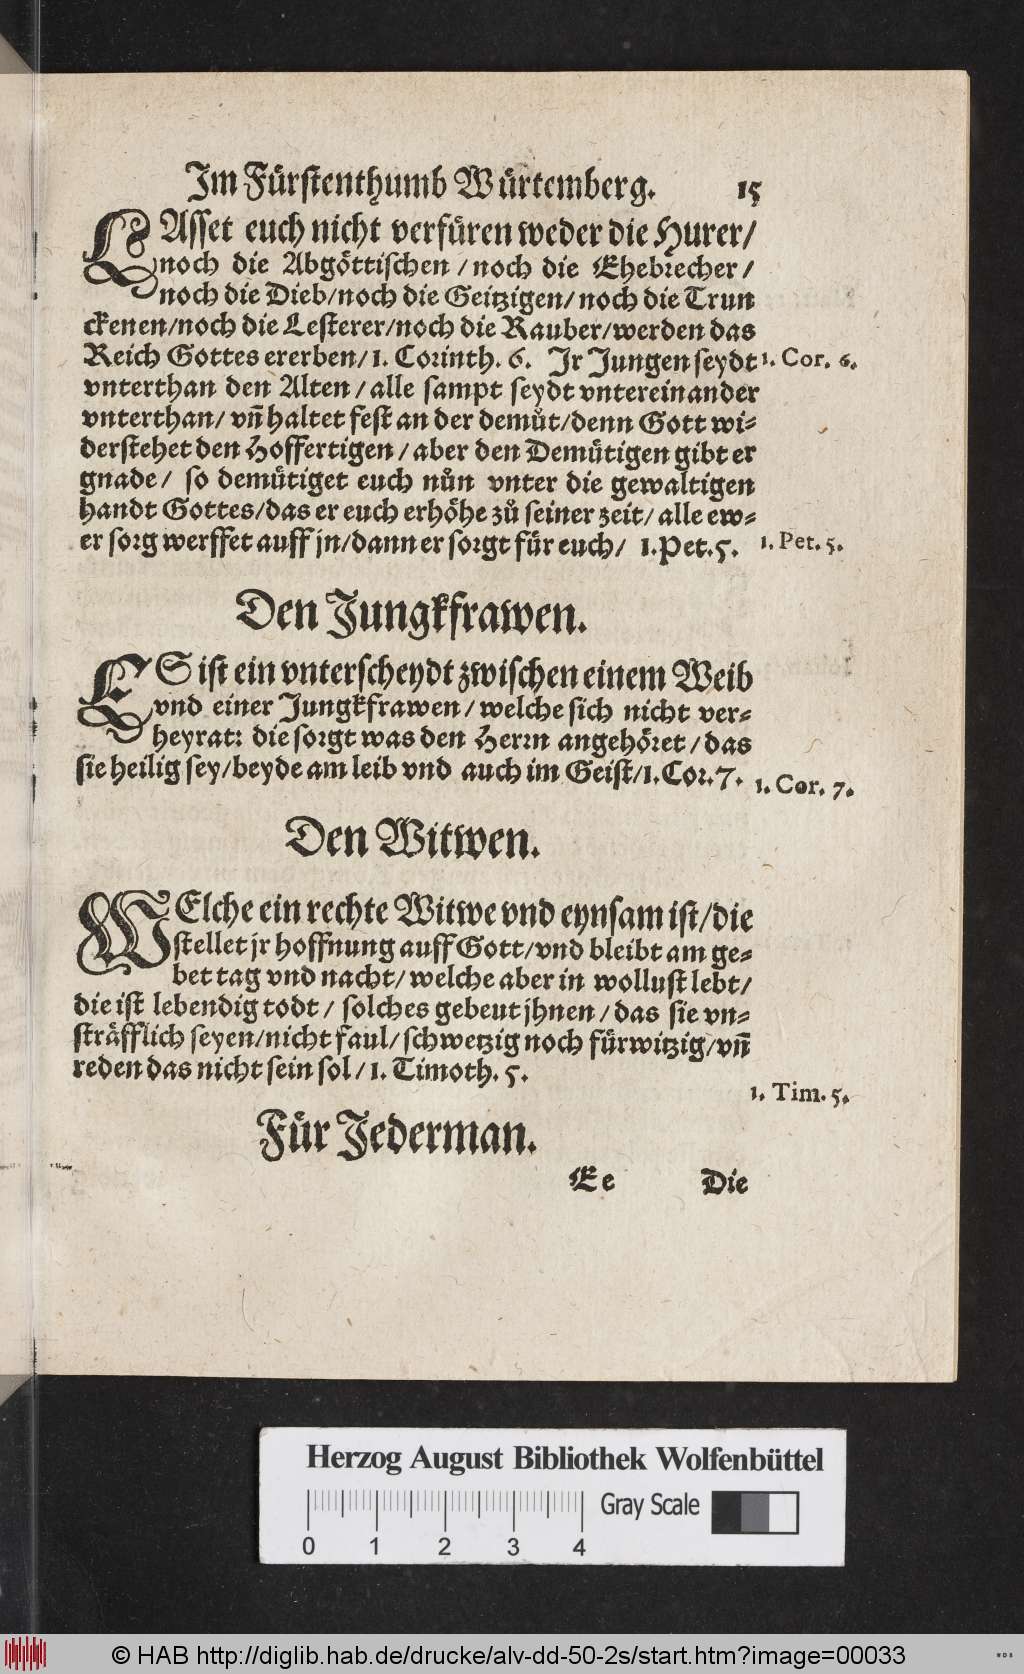 Im Fürstenthumb Würtemberg. 15
LAsset euch nicht verfüren weder die Hurer/
noch die Abgöttischen / noch die Ehebrecher /
noch die Dieb/noch die Geitzigen/ noch die Trun
ckenen/noch die Lesterer/noch die Rauber/werden das
Reich Gottes ererben/ 1. Corinth. 6. Jr Jungen seydt 1. Cor. 6.
vnterthan den Alten / alle sampt seydt vntereinander
vnterthan/ vñ haltet fest an der demůt/denn Gott wi-
derstehet den Hoffertigen / aber den Demütigen gibt er
gnade / so demütiget euch nůn vnter die gewaltigen
handt Gottes/das er euch erhöhe zů seiner zeit/ alle ew-
er sorg werffet auff jn/dann er sorgt für euch/ 1. Pet. 5. 1. Pet. 5.
Den Jungkfrawen.
ES ist ein vnterscheydt zwischen einem Weib
vnd einer Jungkfrawen / welche sich nicht ver-
heyrat: die sorgt was den Herrn angehöret / das
sie heilig sey/beyde am leib vnd auch im Geist/1. Cor. 7. 1. Cor. 7.
Den Witwen.
WElche ein rechte Witwe vnd eynsam ist/die
stellet jr hoffnung auff Gott/vnd bleibt am ge-
bet tag vnd nacht/ welche aber in wollust lebt/
die ist lebendig todt / solches gebeut jhnen / das sie vn-
sträfflich seyen/nicht faul/ schwetzig noch fürwitzig/vñ
reden das nicht sein sol / 1. Timoth. 5.
1. Tim. 5.
Für Jederman.
Ee Die
Herzog August Bibliothek Wolfenbüttel
Gray Scale
0 1 2 3 4
© HAB http://diglib.hab.de/drucke/alv-dd-50-2s/start.htm?image=00033